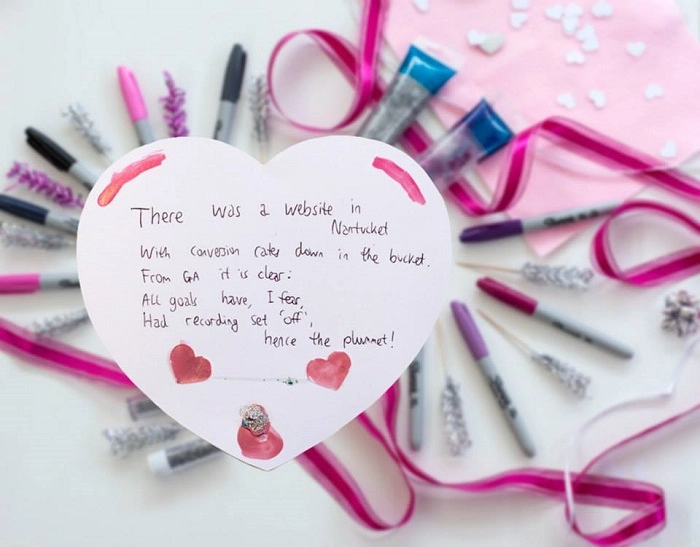 There was a website in
Nantucket
With conversion rates down in the bucket.
From GA it is clear:
All goals have, I fear,
Had recording set 'off',
hence the plummet!